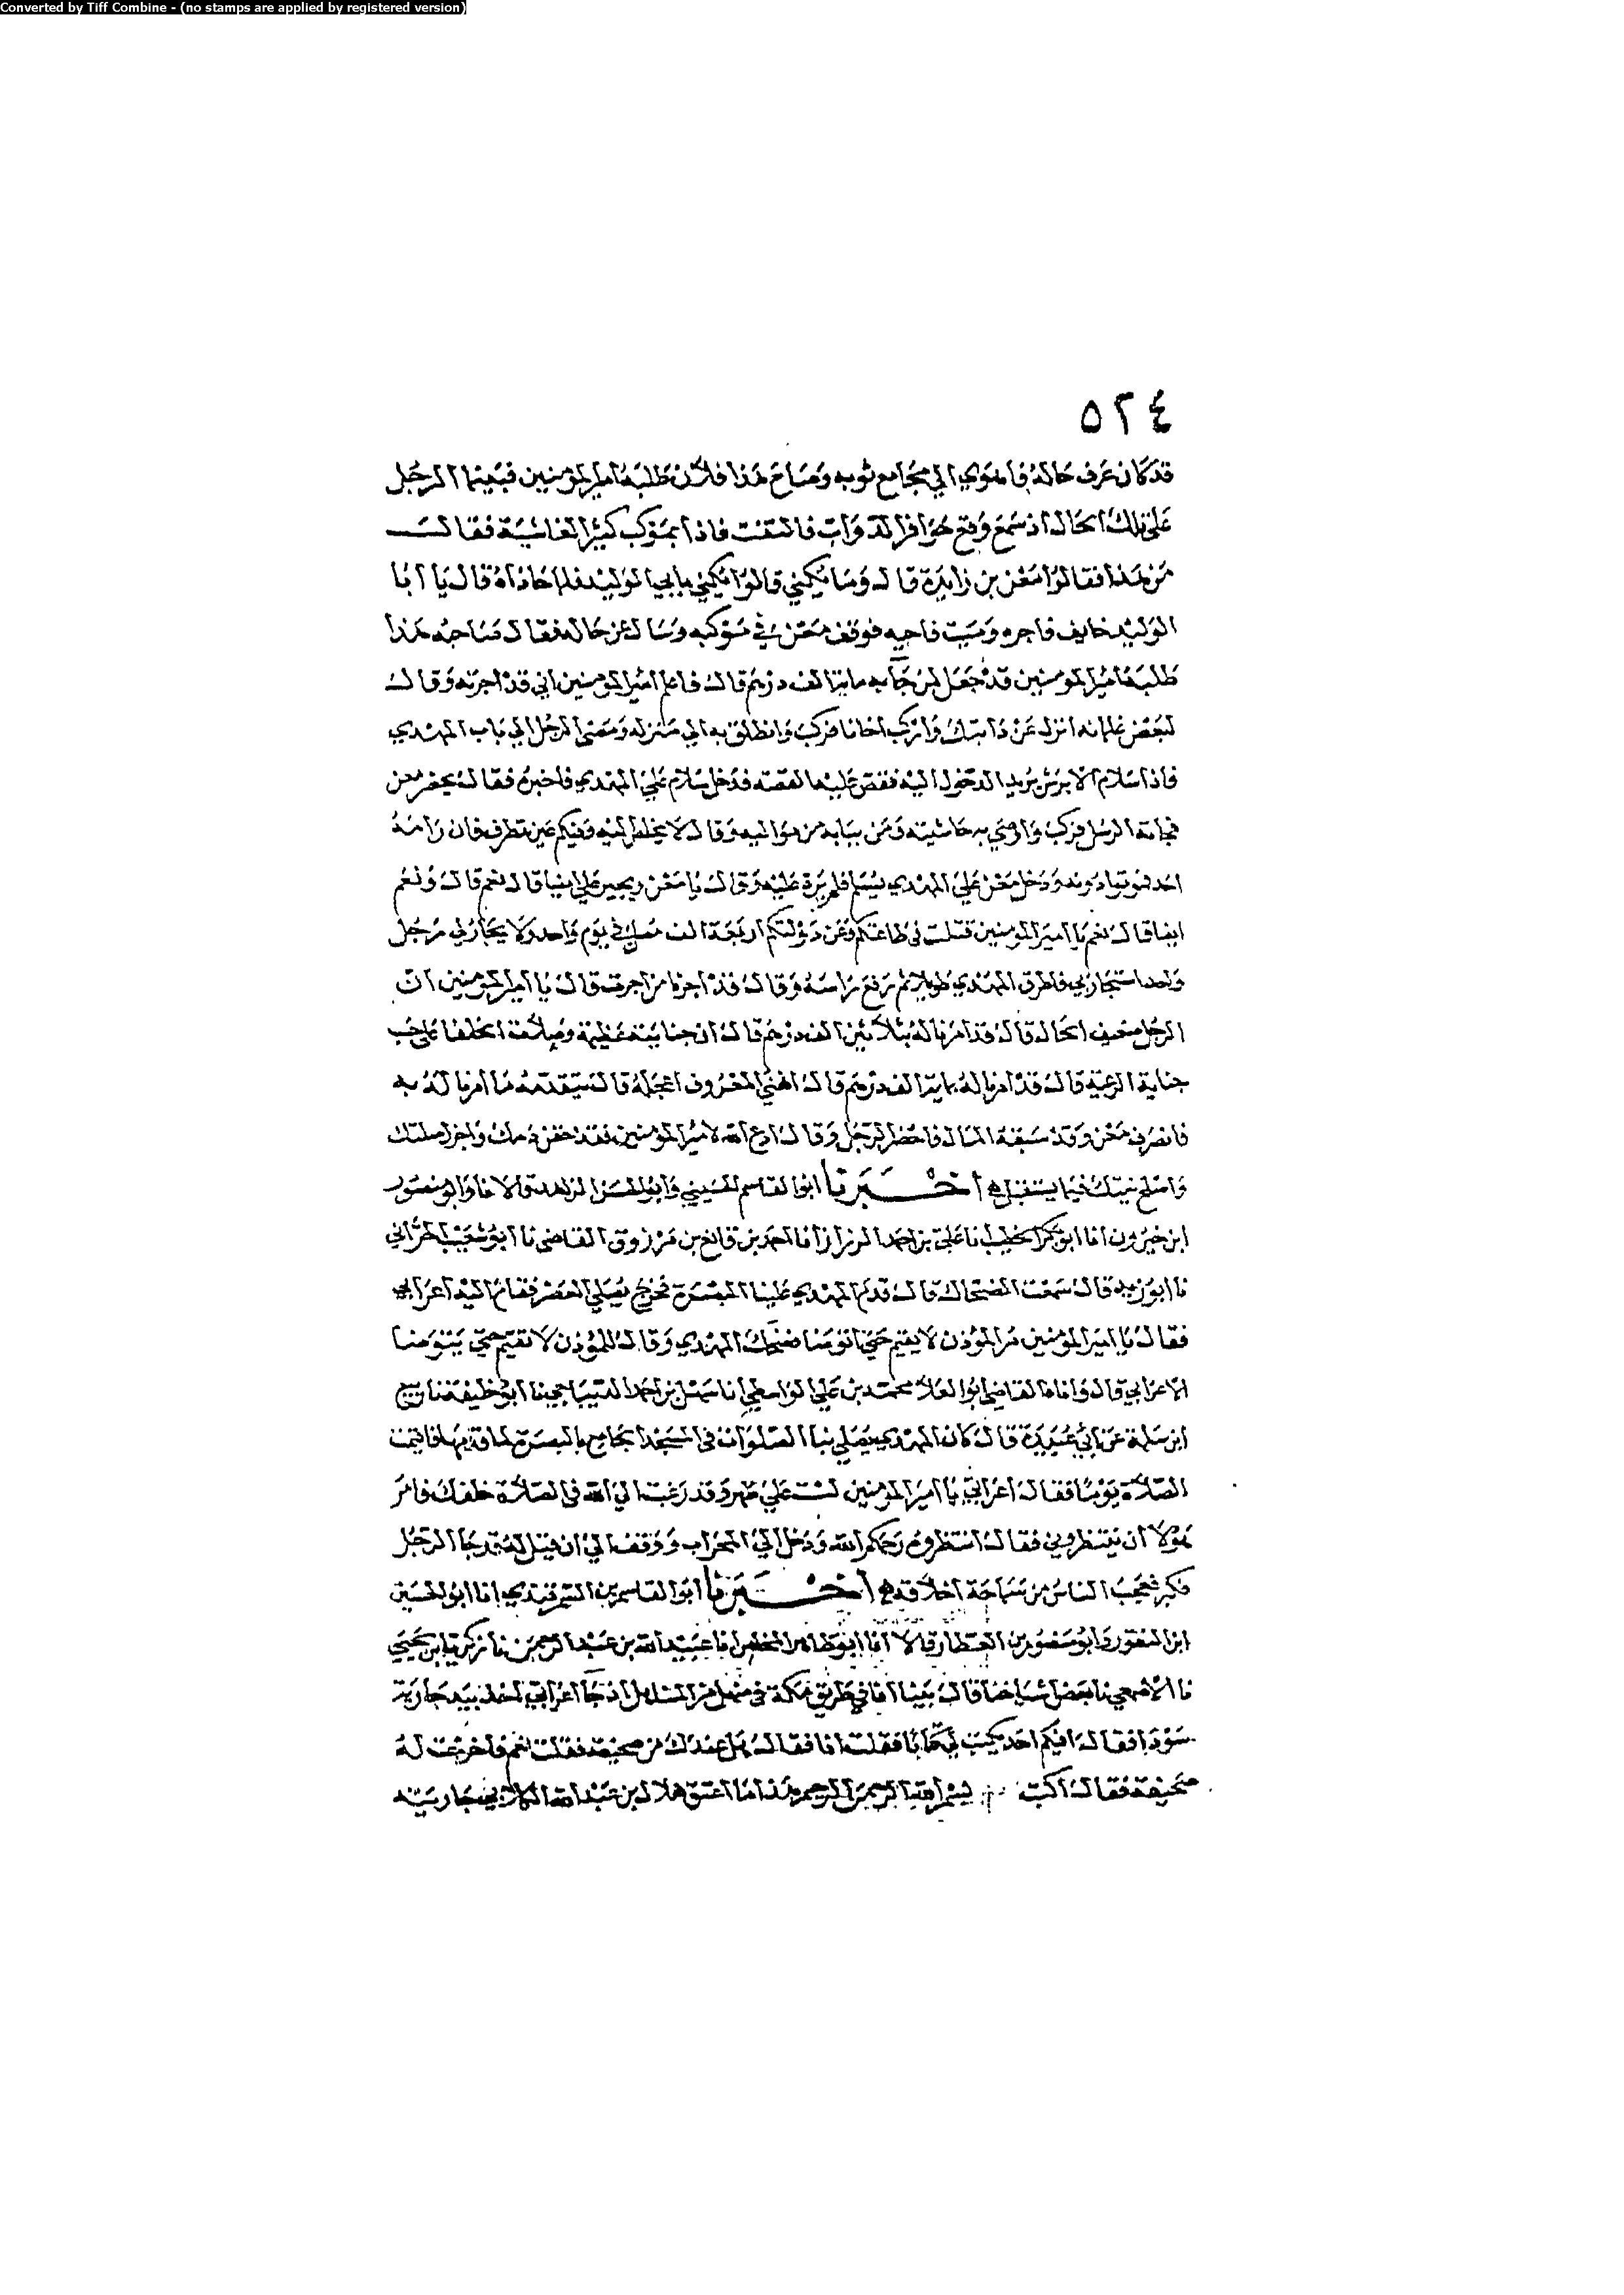 Converted by Tiff Combine - (no stamps are applied by registered version)
٥٢٤
قد كان عرف حاله فاهوى الى مجامع ثوبه وصاح هذا فلان طلبه امير المومنين فبينما الرجل
على تلك الحال اذ سمع وقع حوافر الدواب فالتفت فاذا بموكب كثير الغاشية فقال
من هذا فقالوا معن بن زايدة قال وما يكنى قالوا يكنى بابي الوليد فلما حاذاه قال يا ابا
الوليد خايف فاجره وميت فاحيه فوقف معن في موكبه وسال عن حاله فقال صاحبه هذا
طلبه امير المومنين قد جعل لمن جآ به مايتا الف درهم قال فاعلم امير المومنين اني قد اجرته وقال
لبعض غلمانه انزل عن دابتك واركب اخانا فركب وانطلق به الى منزله ومضى الرجل الى باب المهدي
فاذا سلام الابرش يريد الدخول اليه فقص عليه القصه فدخل سلام على المهدي فاخبره فقال يحضر معن
فجاءته الرسل فركب واوصى به حاشيته ومن ببابه من مواليه وقال لا يخلص اليه وفيكم عين تطرف فان رامه
احد فموتوا دونه ودخل معن على المهدي يسلم فلم يرد عليه وقال يا معن وتجير علي ايضا قال نعم قال ونعم
ايضا قال نعم يا امير المومنين قتلت في طاعتكم وعن دولتكم اربعة الف مصل في يوم واحد ولا يجار لي رجل
واحد استجار بي فاطرق المهدي طويلا ثم رفع راسه وقال قد اجرنا من اجرت قال يا امير المومنين ان
الرجل ضعيف الحال قال قد امرنا له بثلاثين الف درهم قال ان جنايته عظيمة وصلات الخلفا على حسب
جناية الرعية قال قد امرنا له بمايتا الف درهم قال اهنى المعروف اعجله قال يتقدمه ما امرنا له به
فانصرف معن وقد سبقه المال فاحضر الرجل وقال ادع الله لامير المومنين فقد حقن دمك واجزل صلتك
واصلح نيتك فيما يستقبل ه اخبرنا ابوا القاسم الحسيني وابو الحسن الزاهد قالا نا وابو منصور
ابن خيرون انا ابو بكر الخطيب انا علي بن احمد الرزاز انا احمد بن قانع بن مرزوق القاضي نا ابو شعيب الحراني
نا ابو زيد قال سمعت الضحاك قال قدم المهدي علينا البصرة فخرج يصلي العصر فقام اليه اعرابي
فقال يا امير المومنين مر المؤذن لا يقيم حتى اتوضا فضحك المهدي وقال للمؤذن لا تقيم حتى يتوضا
الاعرابي قال وانا القاضي ابوا العلا محمد بن علي الواسطي انا سهل بن احمد الديباجي نا ابو خليفة نا رفيع
ابن سلمة عن ابي عبيدة قال كان المهدي يصلي بنا الصلوات في المسجد الجامع بالبصرة لما قدمها فاقيمت
الصلاة يوما فقال اعرابي يا امير المومنين لست على طهر وقد رغبت الى الله في الصلاة خلفك فامر
هولا ان ينتظروني فقال انتظروه رحمكم الله ودخل الى المحراب ووقف الى ان قيل له قد جا الرجل
فكبر فعجب الناس من سماحة اخلاقه ه اخبرنا ابوا القاسم بن السمرقندي انا ابو الحسين
ابن النقور وابو منصور بن العطار قالا انا ابو طاهر المخلص انا عبيد الله بن عبد الرحمن نا زكريا بن يحيى
نا الاصمعي نا بعض اشياخنا قال بينا انا في طريق مكة في منهل من المناهل اذ جآ اعرابي اخذ بيد جارية
سودا فقال افيكم احد يكتب لي كتابا فقلت انا فقال هل عندك من صحيفه فقلت نعم فاخرجت له
صحيفة فقال اكتب بسم الله الرحمن الرحيم هذا ما اعتق هلال بن عبد الله الكلابي جاريته